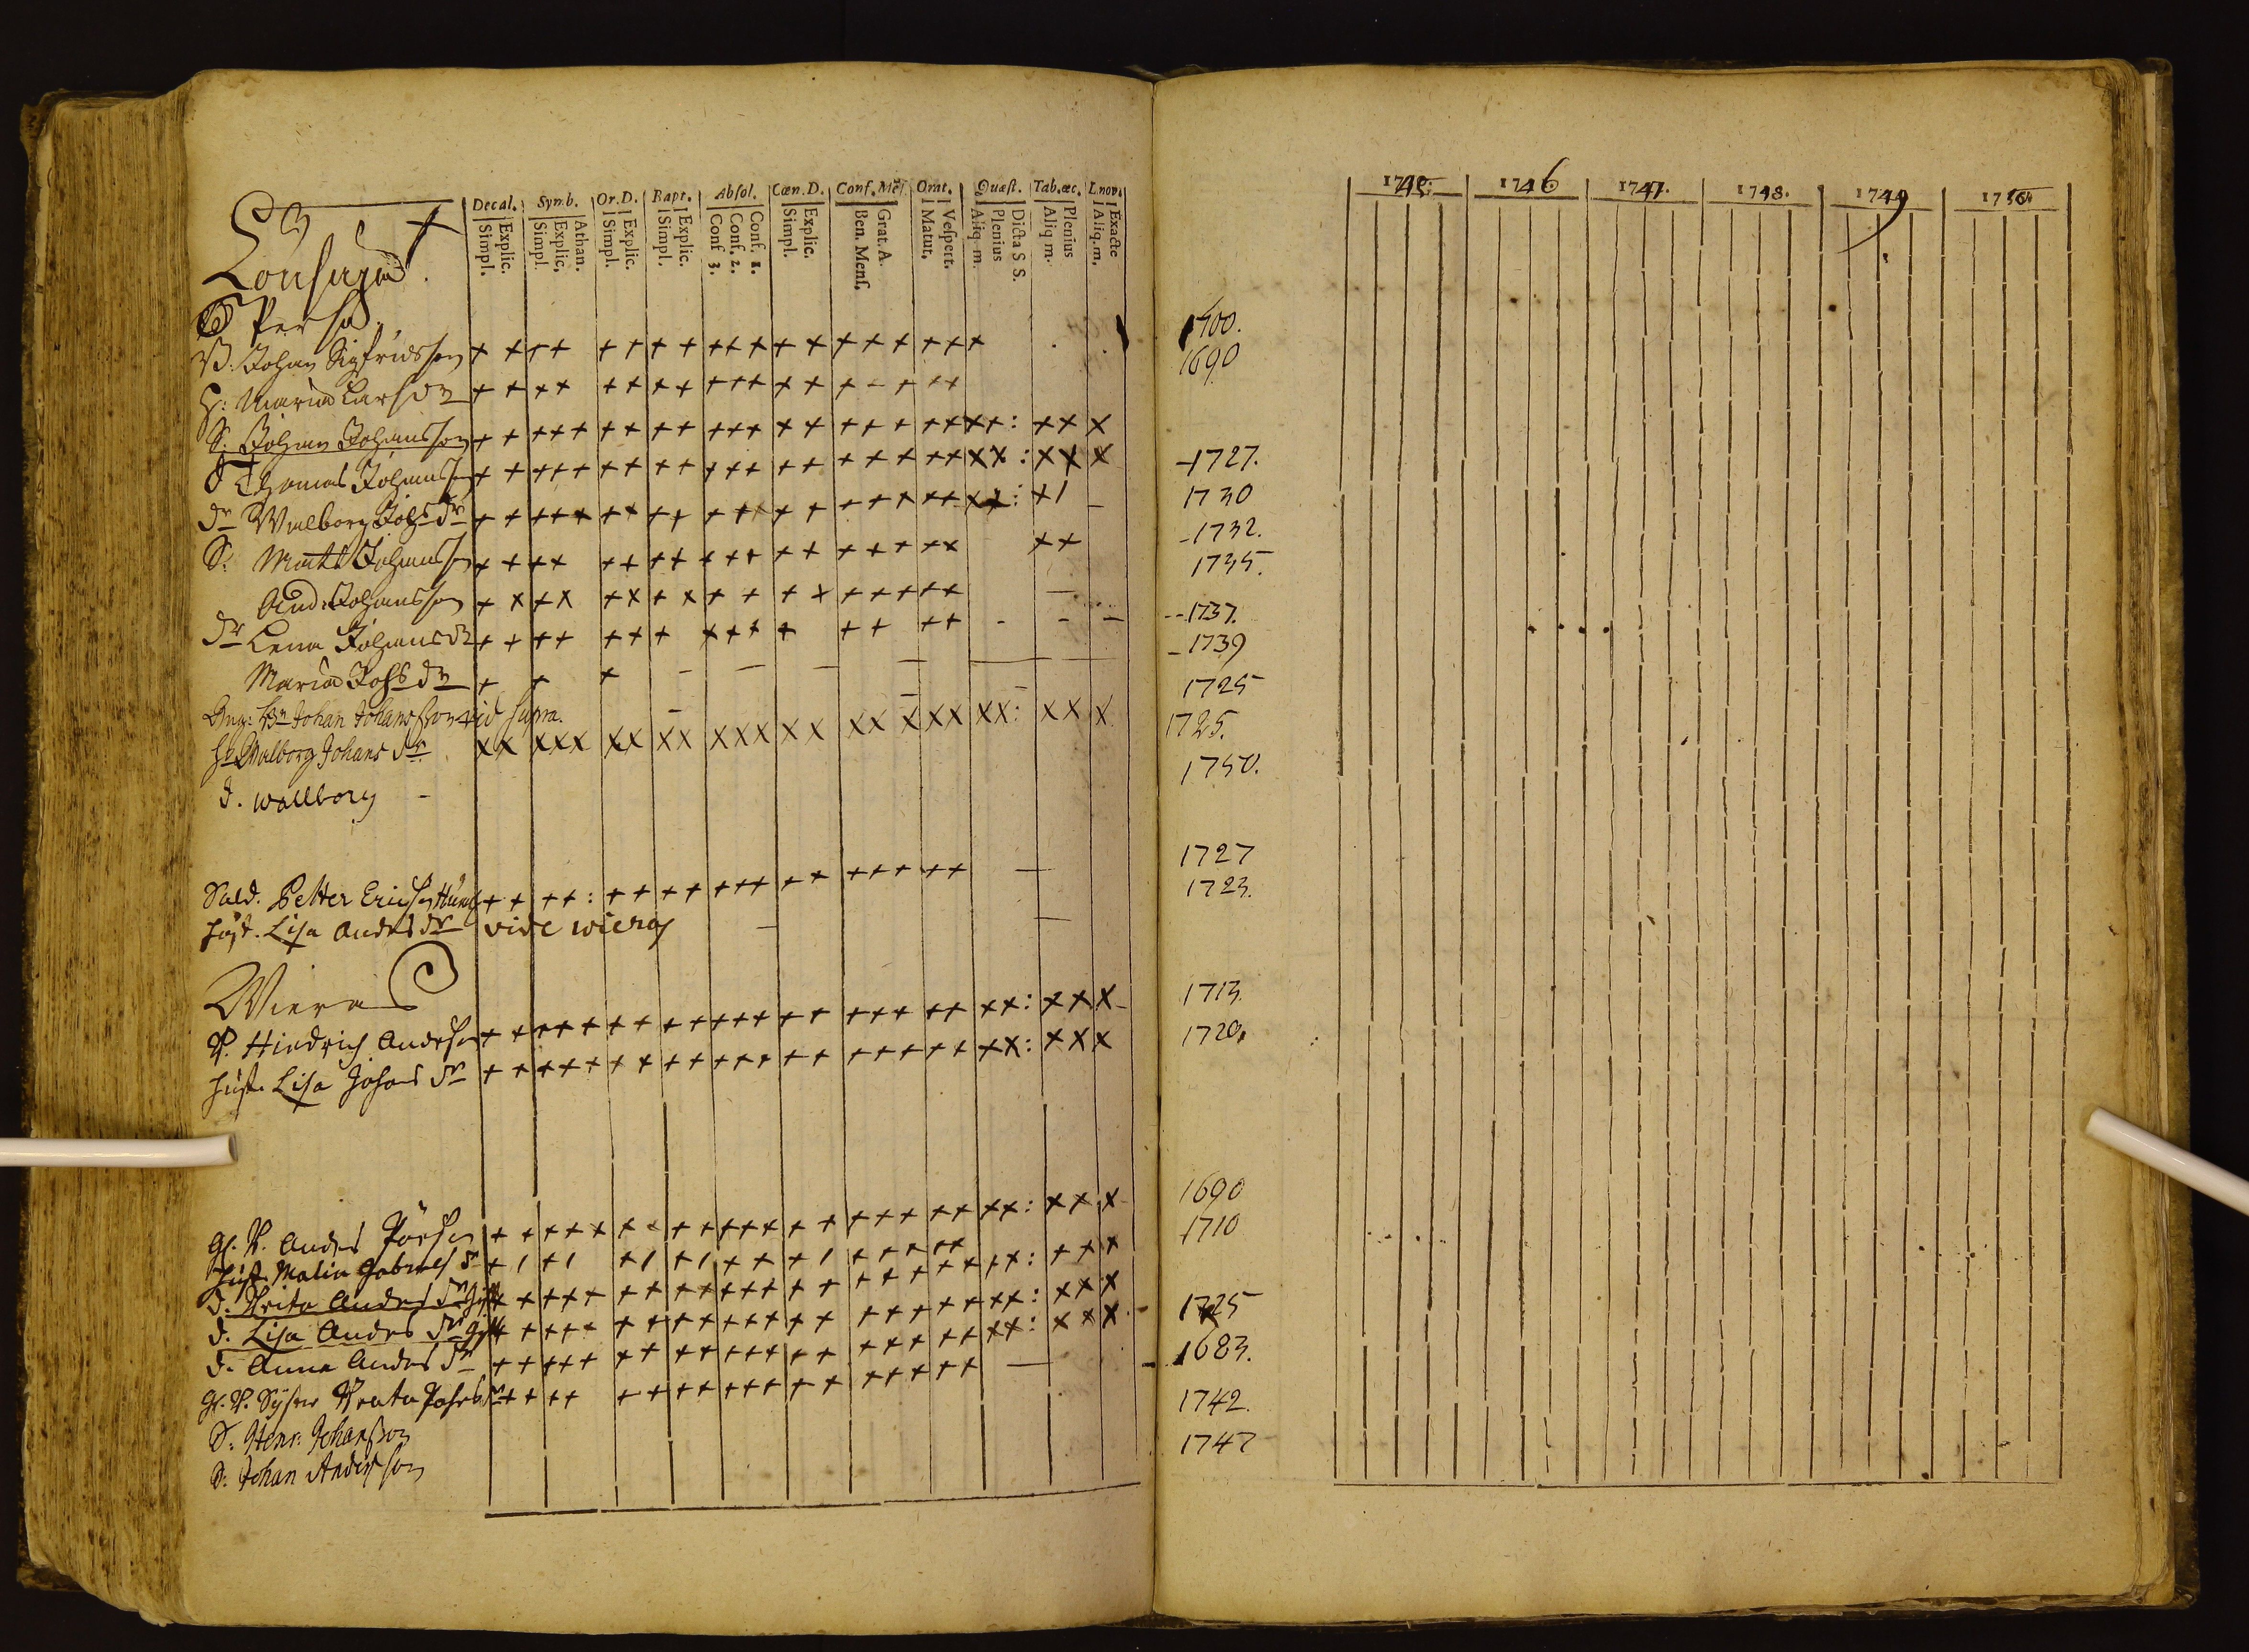 Decal. Symb. Or. D. Bapt. Absol. Cœn. D. Conf. Mēs. Orat. Quæst. Tab. œc. L. nov.
Simpl. Explic. Simpl. Explic. Athan. Simpl. Explic. Simpl. Explic. Conf 3. Conf. 2. Conf. 1. Simpl. Explic. Ben. Mens. Grat. A. Matut. Vespert. Aliq m. Plenius Dicta S S. Aliq m. Plenius Aliq. m. Exacte
1746 1747. 1748. 1749
Persa
Johan Sigfridsson 1700.
H: Maria Larsdr 1690
S. Johan Johansson 1727.
Thomas Johansson 1730
dr Walborg Johs dr 1732.
S: Matts Johansson 1735.
And: Johansson 1737.
dr Lena Johansdr 1739
Maria Johsdr
Johan Johansson vid supra. 1725
Walborg Johans dr 1725.
d. wallborg 1750.
Sold. Petter Ericsson 1727
hust. Lisa Anders dr vide wieras 1723.
Wieras
B. Hindrich Andersson 1713.
hust. Lisa Johans dr 1720.
Gl. B. Anders 1690
hust. Malin Gabriels dr 1710
d. Brita Anders dr gift
d. Lisa Anders dr gift
d. Anna Anders dr 1725
Gl. B. Syster 1683.
S: Henr: Johansson 1742.
S: Johan Andersson 1747